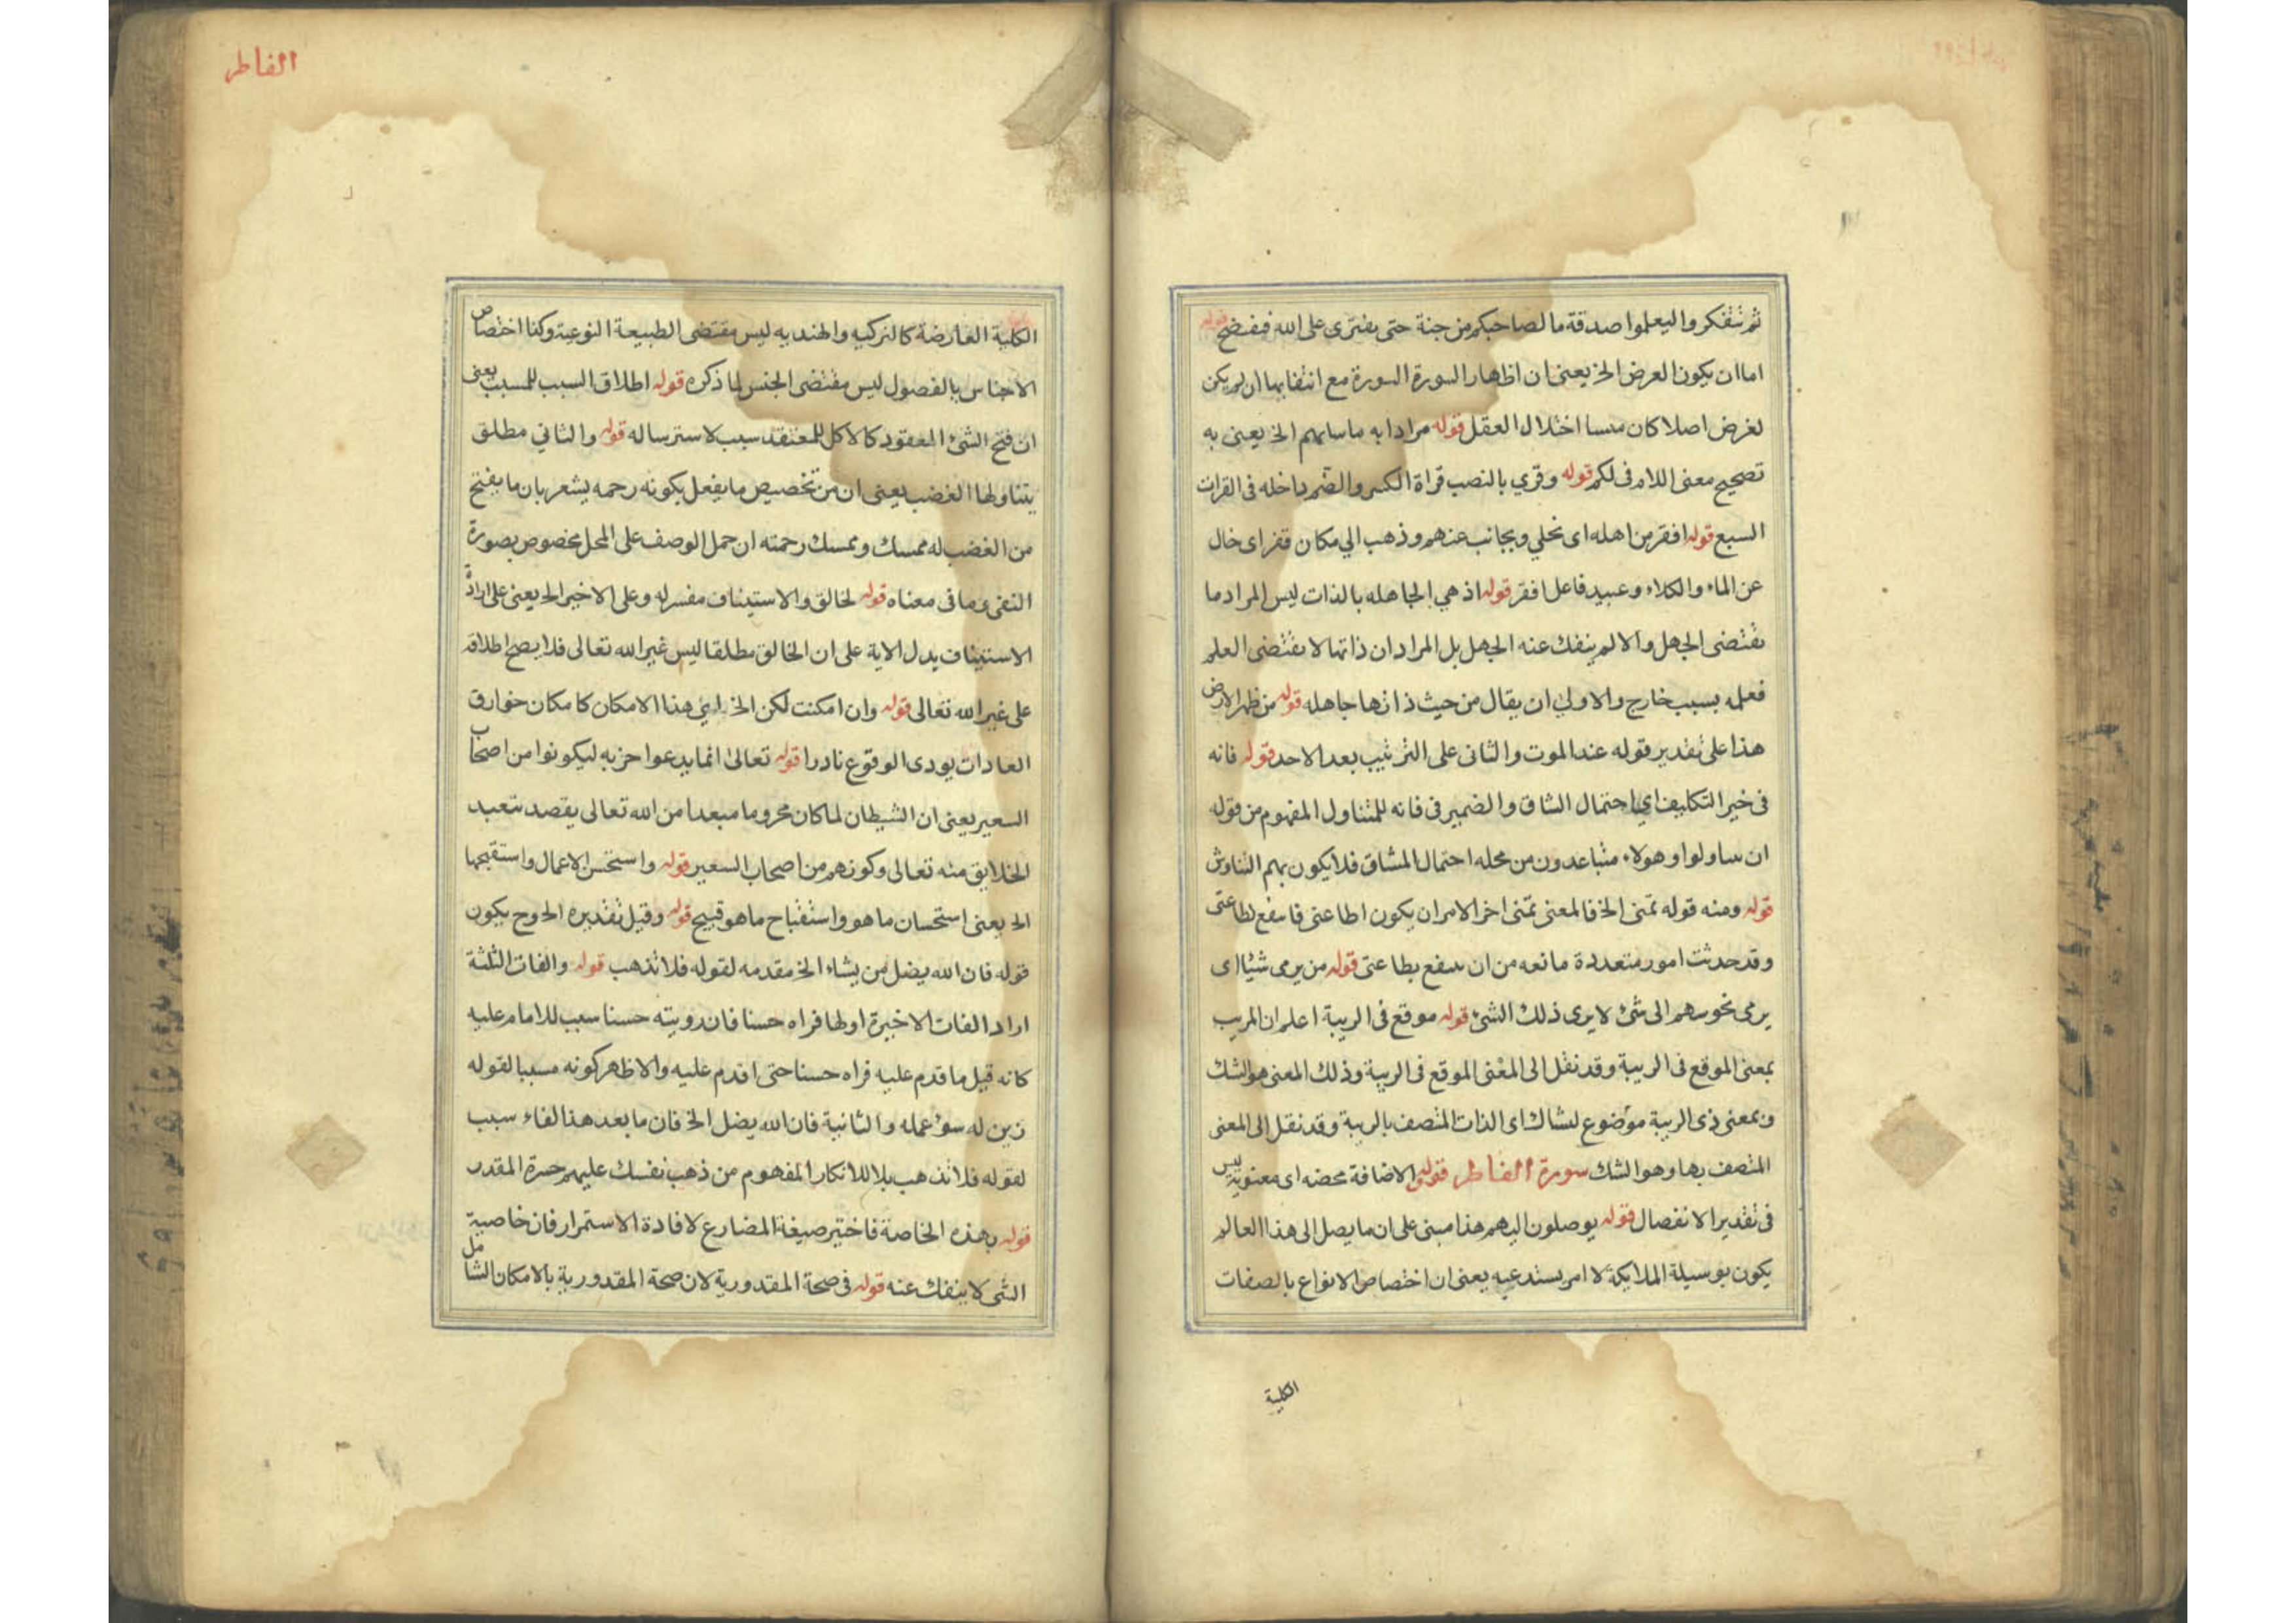 ثم نتفكر واليعلموا صدقة ما لصاحبكم من جنة حتى يفترى على الله فيفضح قوله
اما ان يكون العرض الخ يعنى ان اظهار السورة السورة مع انتفايها ان لم يكن
لغرض اصلا كان اختلال العقل قوله مرادا به الخ يعنى به
تصحيح معنى اللام فى لكم قوله وقرى بالنصب قراة الكسر والضم داخله فى القرات
السبع قوله افقر من اهله اى تخلي ويجانب عنهم وذهب الي مكان قفر اى خال
عن الماء والكلاء وعبيد فاعل افقر قوله اذ هي الجاهله بالذات ليس المراد ما
يقتضى الجهل والا لم ينفك عنه الجهل بل المراد ان ذاتها لا يقتضى العلم
فعلمه بسبب خارج والاولي ان يقال من حيث ذاتها جاهله قوله من ظهر الارض
هذا على تقدير قوله عند الموت والثانى على الترتيب بعد الاحد قوله فانه
فى خير التكليف اي احتمال الشاق والضمير فى فانه للتناول المفهوم من قوله
ان وهولاء متباعدون من محله احتمال المشاق فلا يكون بهم التناوش
قوله ومنه قوله تمنى الخ فالمعنى تمنى اخر الامر ان يكون اطاعنى
وقد حدثت امور متعددة مانعه من ان بطاعتى قوله من يرمى شيئا اى
يرمى الى شئ لا يرى ذلك الشئ قوله موقع فى الريبة اعلم ان المريب
بمعنى الموقع فى الريبة وقد نقل الى المعنى الموقع فى الريبة وذلك المعنى هو الشك
وبمعنى ذى الريبة موضوع لشاك اى الذات المتصف بالريبة وقد نقل الى المعنى
المتصف بها وهو الشك سورة الفاطر قوله الاضافة محضه اى معنوية ليس
فى تقدير الانفصال قوله يوصلون اليهم هذا مبنى على ان ما يصل الى هذا العالم
يكون بوسيلة الملايكة لا امر يستدعيه يعنى ان اختصاص الانواع بالصفات
الكلية
الفاطر
الكلية العارضة كالتركيه والهنديه ليس مقتضى الطبيعة النوعية وكذا اختصاص
الاجناس بالفصول ليس مقتضى الجنس لما ذكره قوله اطلاق السبب للمسبب يعنى
ان فتح الشئ المعقود كالاكل للمعتقد سبب لاسترساله قوله والثاني مطلق
يتناولها الغضب يعنى ان من تخصيص ما يفعل بكونه رحمه يشعر بان ما يفتح
من الغضب له ممسك وممسك رحمته ان حمل الوصف على المحل مخصوص بصورة
النفى وما فى معناه قوله لخالق والاستيناف مفسر له وعلى الاخير الخ يعنى على ارادة
الاستيناف يدل الاية على ان الخالق مطلقا ليس غير الله تعالى فلا يصح اطلاقه
على غير الله تعالى قوله وان امكنت لكن الخ هذا الامكان كامكان خوارق
العادات يودى الوقوع نادرا قوله تعالى انما يدعوا حزبه ليكونوا من اصحاب
السعير يعنى ان الشيطان لما كان محروما مبعدا من الله تعالى يقصد تبعيد
الخلايق منه تعالى وكونهم من اصحاب السعير قوله واستحسن الاعمال واستقبحها
الخ يعنى استحسان ما هو واستقباح ما هو قبيح قوله وقيل تقديره الخ وح يكون
قوله فان الله يضل من يشاء الخ مقدمه لقوله فلا تذهب قوله والفات الثلثة
اراد الفات الاخيرة اولها فراه حسنا فان رويته حسنا سبب للاقدام عليه
كانه قيل ما قدم عليه فراه حسنا حتى اقدم عليه والاظهر كونه مسببا لقوله
زين له سوء عمله والثانية فان الله يضل الخ فان ما بعد هذا لفاء سبب
لقوله فلا تذهب بلا للانكار المفهوم من ذهب نفسك عليهم حسرة المقدر
قوله بهذه الخاصة فاختير صيغة المضارع لافادة الاستمرار فان خاصية
الشى لا ينفك عنه قوله فى صحة المقدورية لان صحة المقدورية بالامكان الشامل